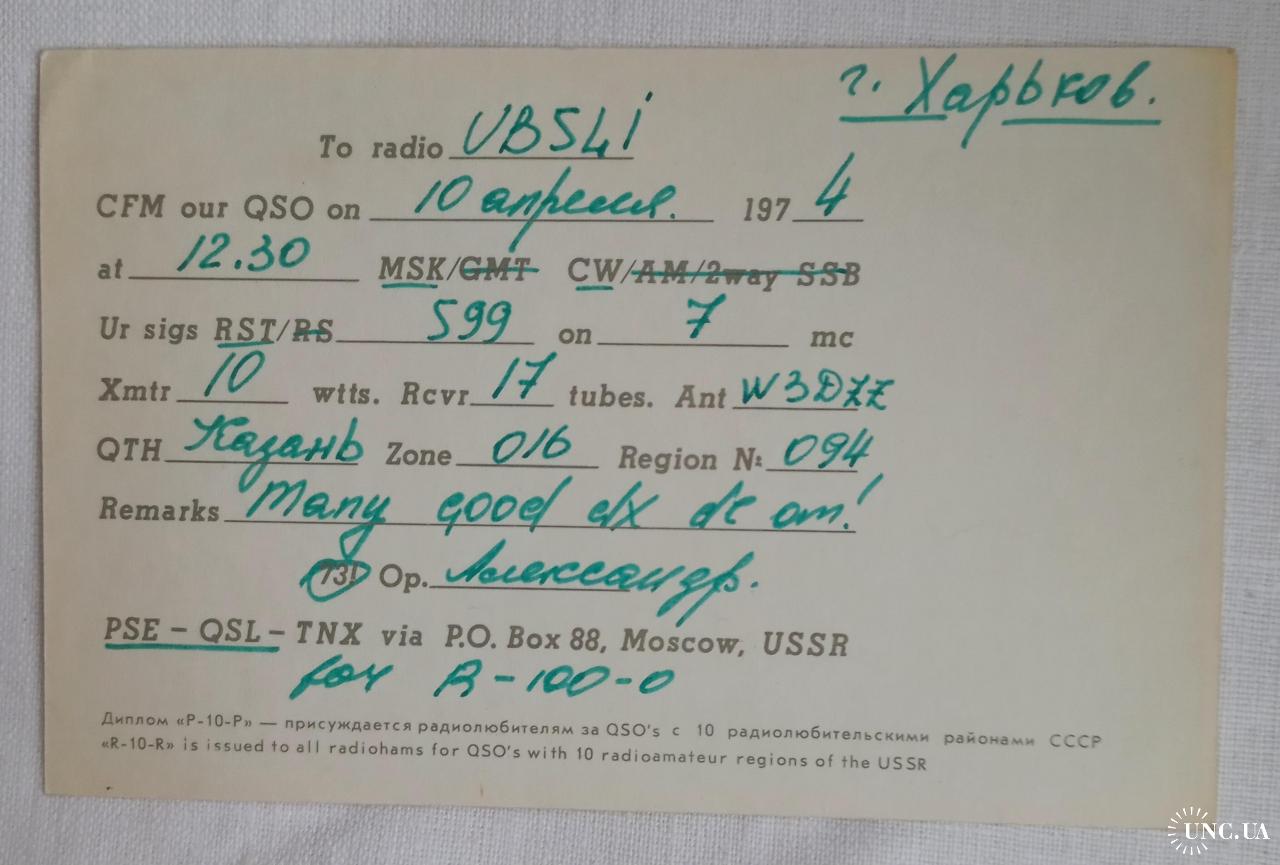 г. Харьков.
To radio UB5LI
CFM our QSO on 10 апреля. 1974
at 12.30 MSK/GMT CW/AM/2way SSB
Ur sigs RST/RS 599 on 7 mc
Xmtr 10 wtts. Rcvr 17 tubes. Ant W3DZZ
QTH Казань Zone 016 Region №: 094
Remarks Many good dx dr om!
73! Op. Александр.
PSE - QSL - TNX via P.O. Box 88, Moscow, USSR
for R-100-O
Диплом «Р-10-Р» — присуждается радиолюбителям за QSO's с 10 радиолюбительскими районами СССР
«R-10-R» is issued to all radiohams for QSO's with 10 radioamateur regions of the USSR
UNC.UA